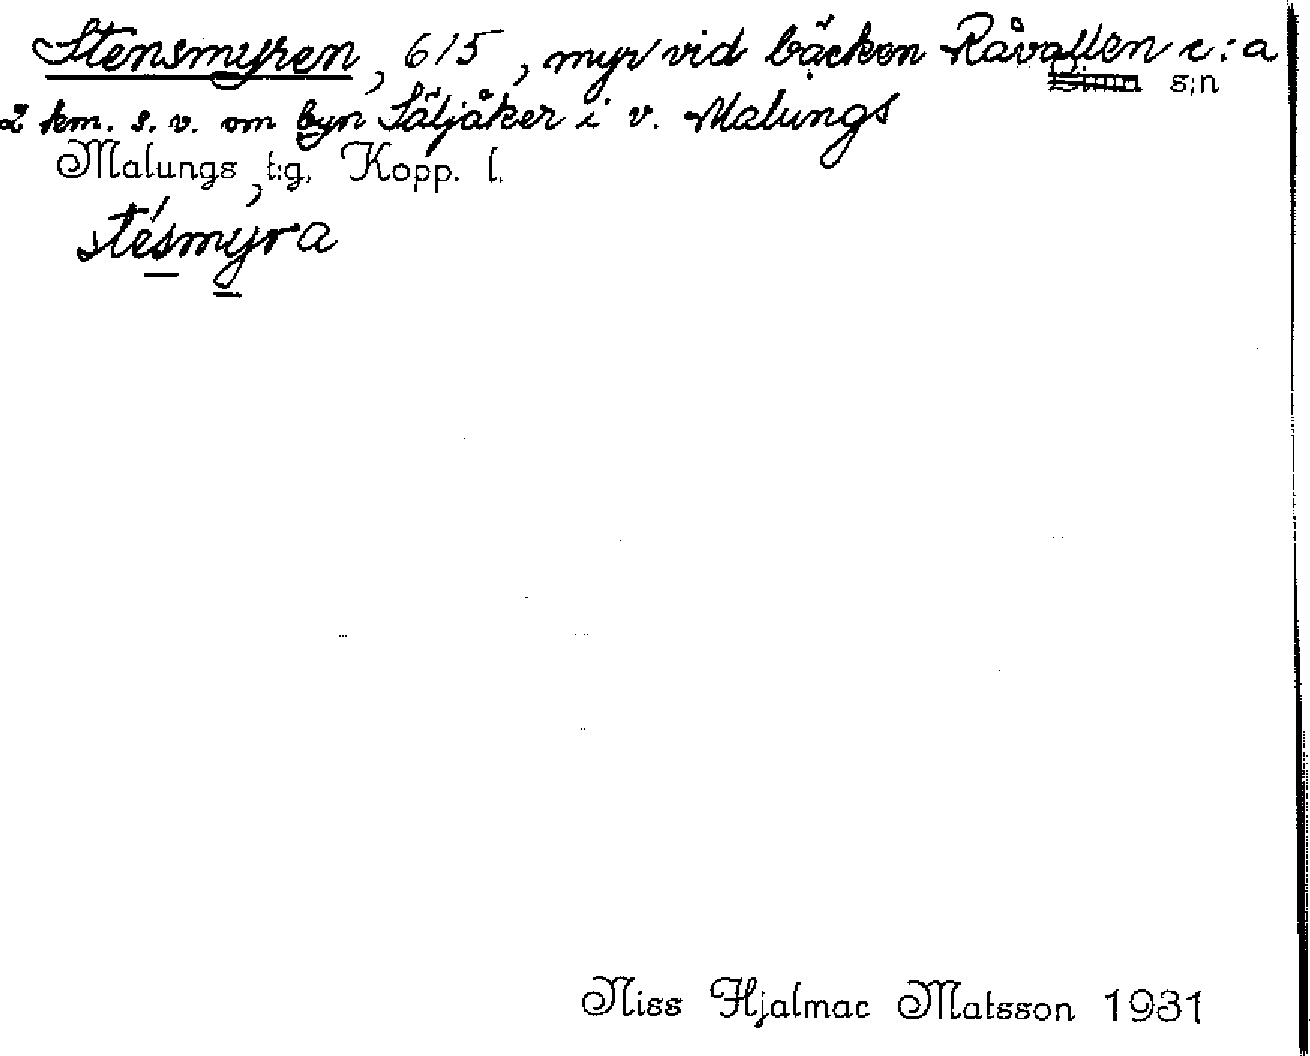 Stensmyren, 615, myr vid bäcken Råvallen c:a
s:n
2 km. s.v. om byn Säljåker i v. Malungs
Malungs, t:g. Kopp. l.
stésmyra
Niss Hjalmar Matsson 1931